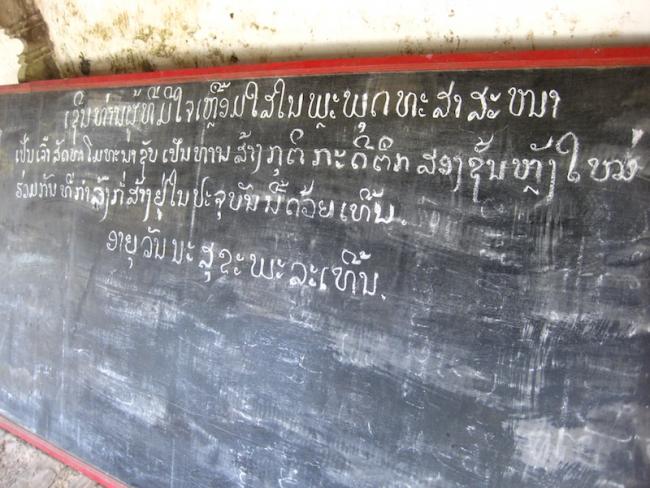 ເຊີນທ່ານຜູ້ທີ່ມີໃຈເຫຼື້ອມໃສໃນພຼະພຸດທະສາສະໜາ
ເປັນເຈົ້າສັດທາໂມທະນາຊັບເປັນທານສ້າງກຸຕິກະດີຕຶກສອງຊັ້ນຫຼັງໃຫຍ່
ຮ່ວມກັນທີ່ກຳລັງກໍ່ສ້າງຢູ່ໃນປະຈຸບັນນີ້ດ້ວຍເທີ້ນ.
ອາຍຸວັນນະສຸຂະພະລະເທີ້ນ.